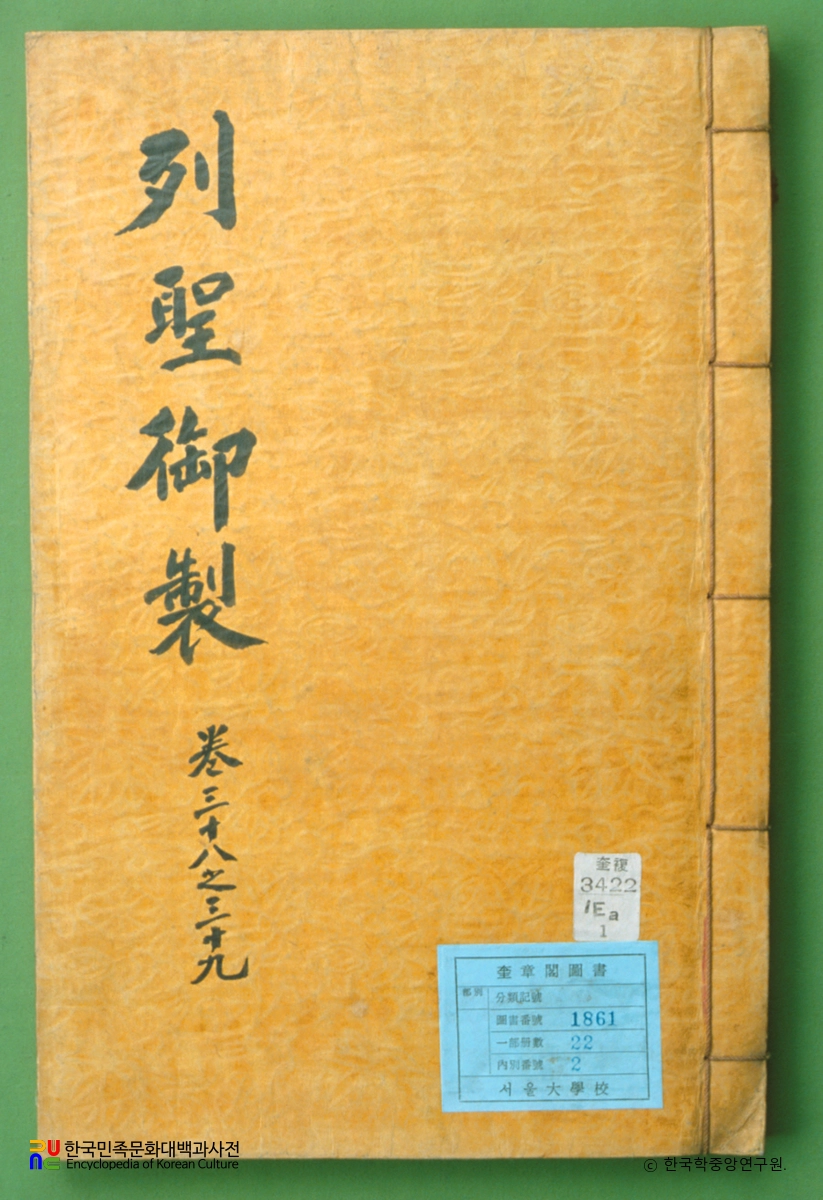 列聖御製
卷三十八之三十九
奎複
3422
1Ea
1
奎章閣圖書
部別
分類記號
圖書番號 1861
一部册數 22
內別番號 2
서울大學校
한국민족문화대백과사전
Encyclopedia of Korean Culture
© 한국학중앙연구원.